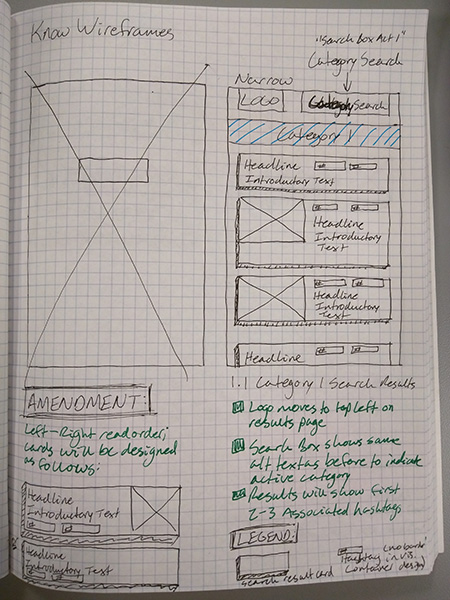 Know Wireframes
"Search Box Act 1"
Category Search
Narrow
LOGO
Search
Category 1
Headline
Introductory Text
Headline
Introductory
Text
Headline
Introductory
Text
Headline
AMENDMENT:
Left-Right read order;
cards will be designed
as follows:
Headline
Introductory Text
Headline
Introductory Text
1.1 Category 1 Search Results
Logo moves to top left on
results page
Search Box shows same
alt text as before to indicate
active category
Results will show first
2-3 Associated hashtags
LEGEND:
Search result card
Hashtag in vis.
Container design